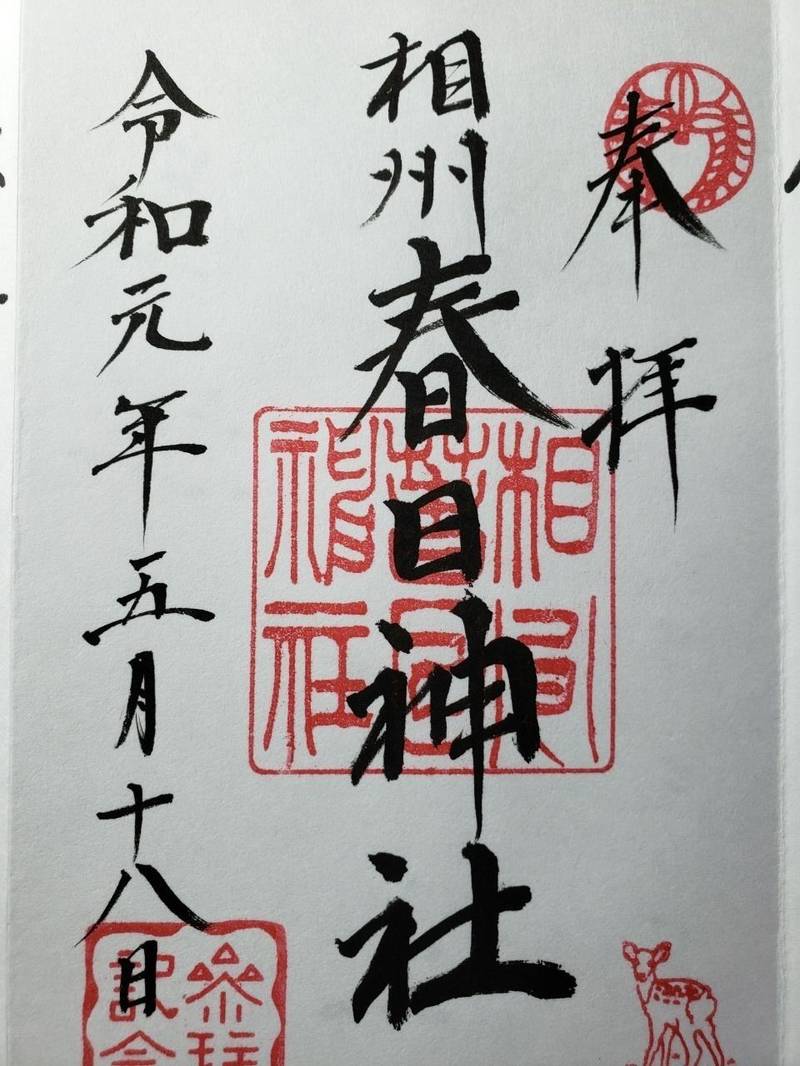 奉拝
相州春日神社
相州春日神社
令和元年五月十八日
参拝記念